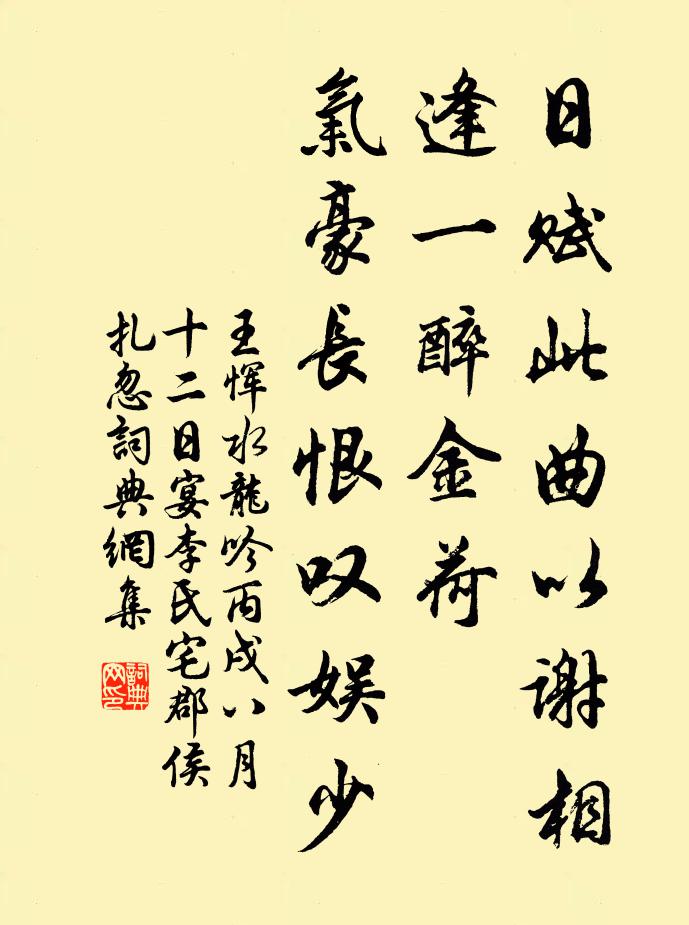 日赋此曲以谢相
逢一醉金荷
氣豪長恨叹娱少
王恽水龍吟丙戌八月
十二日宴李氏宅郡侯
扎忽詞典網集
詞典網印